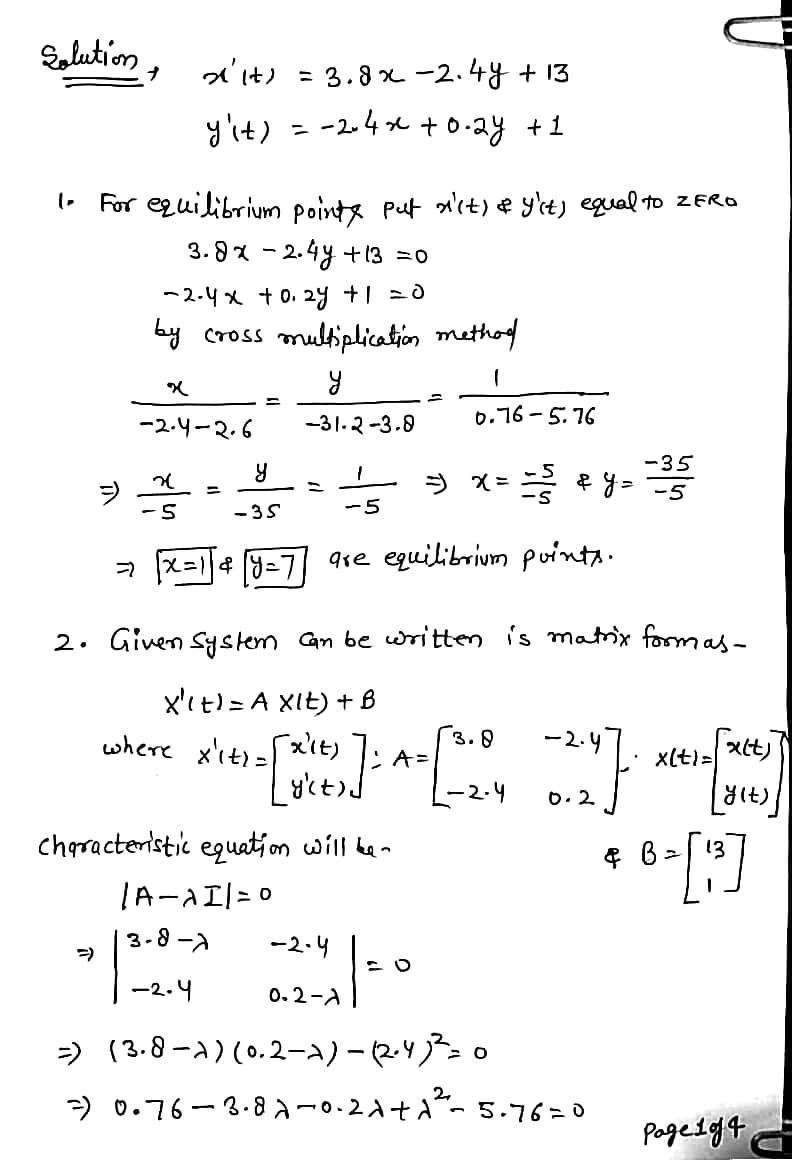 Solution,
x'(t) = 3.8x - 2.4y + 13
y'(t) = -2.4x + 0.2y + 1
1. For equilibrium points put x'(t) & y'(t) equal to ZERO
3.8x - 2.4y + 13 = 0
-2.4x + 0.2y + 1 = 0
by cross multiplication method
x/(-2.4-2.6) = y/(-31.2-3.8) = 1/(0.76-5.76)
⇒ x/-5 = y/-35 = 1/-5 ⇒ x = -5/-5 & y = -35/-5
⇒ x=1 & y=7 are equilibrium points.
2. Given system can be written is matrix form as-
X'(t) = A X(t) + B
where x'(t) = [x'(t) y'(t)] ; A = [3.8 -2.4 -2.4 0.2] ; X(t) = [x(t) y(t)]
& B = [13 1]
characteristic equation will be-
|A-λI| = 0
⇒ |3.8-λ -2.4 -2.4 0.2-λ| = 0
⇒ (3.8-λ)(0.2-λ) - (2.4)² = 0
⇒ 0.76 - 3.8λ - 0.2λ + λ² - 5.76 = 0
Page 1 of 4